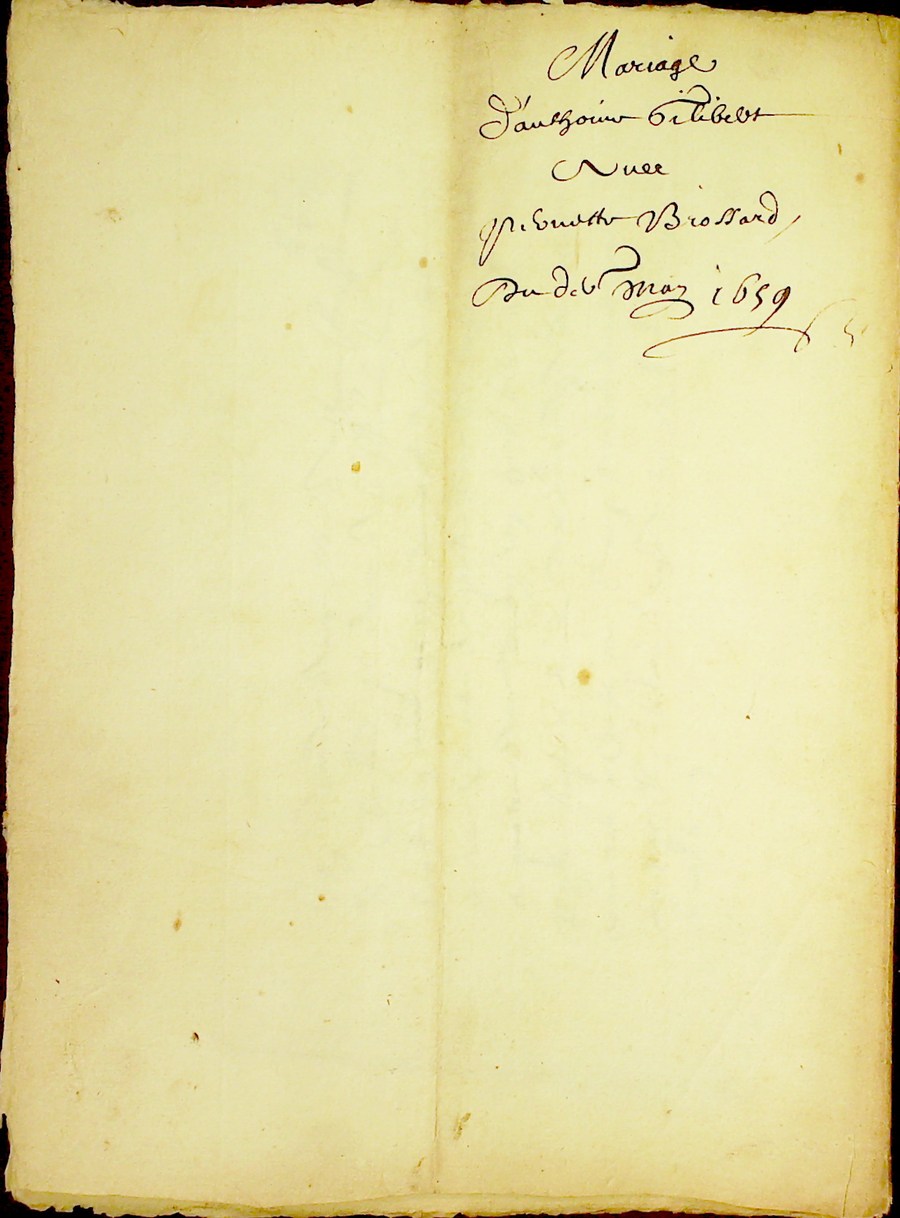 Mariage
D'anthoine Gilibert
Avec
Pernette Brossard
Du der may 1659